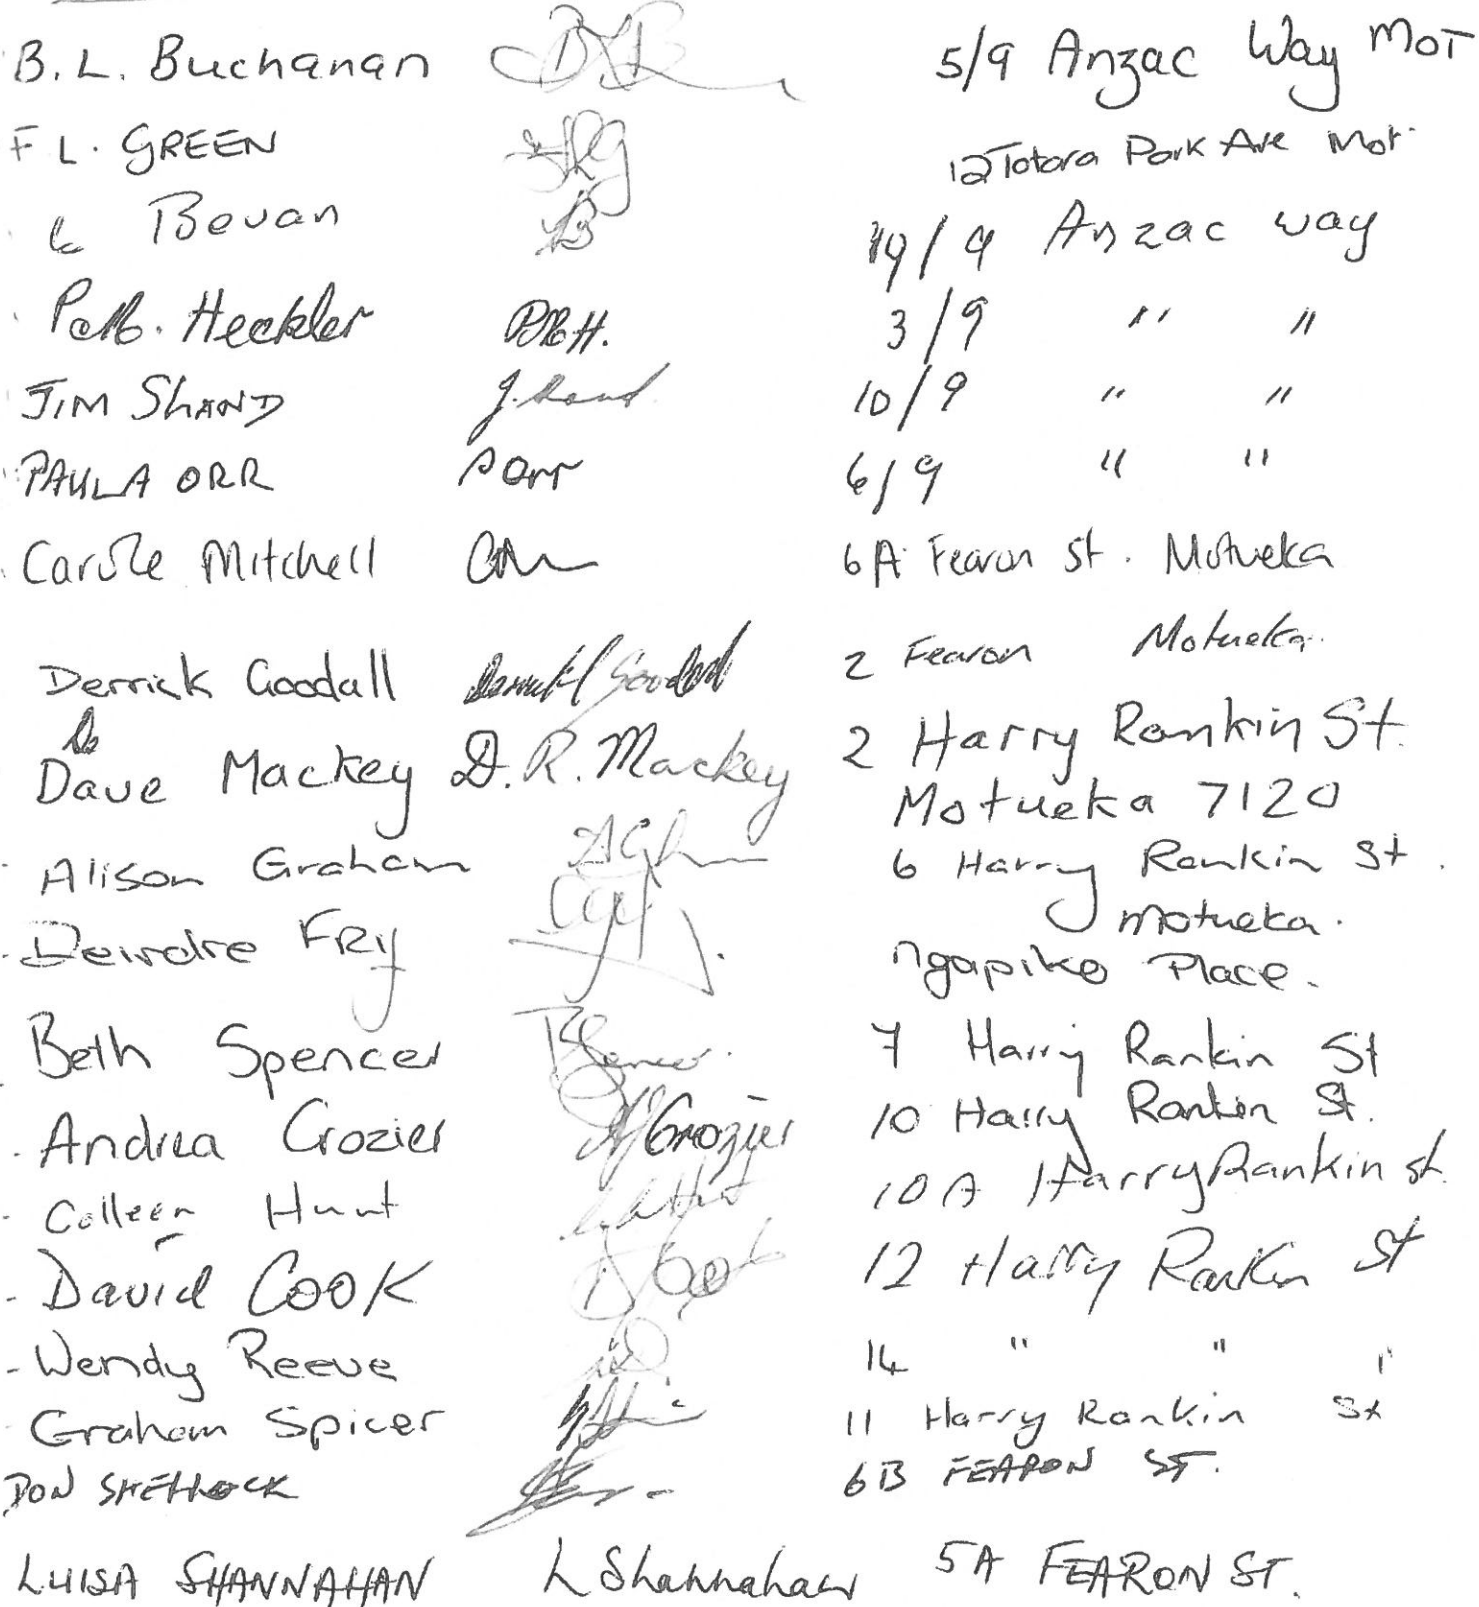 B. L. Buchanan 5/9 Anzac Way MOT
F L. GREEN 12 Totara Park Ave Mot
Bevan 19/9 Anzac way
Heckler P.M.H. 3/9 " "
JIM SHAND J. Shand 10/9 " "
PAULA ORR P Orr 6/9 " "
Carole Mitchell CM 6A Fearon St. Motueka
Derrick Goodall Derrick Goodall 2 Fearon Motueka
Dave Mackey D. R. Mackey 2 Harry Rankin St.
Motueka 7120
Alison Graham 6 Harry Rankin St.
Motueka.
Deirdre FRY Ngapiko Place.
Beth Spencer B Spencer 7 Harry Rankin St
Andrea Crozier A Crozier 10 Harry Rankin St.
Colleen Hunt 10A Harry Rankin St.
David COOK D Cook 12 Harry Rankin St
Wendy Reeve 14 " " "
Graham Spicer 11 Harry Rankin St
DON 6B FEARON ST.
LUISA SHANNAHAN L Shannahan 5A FEARON ST.